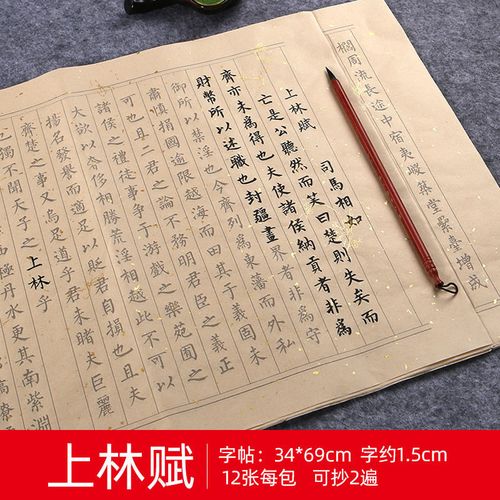 櫩周流長途中宿夷嵕築堂累臺增成
上林賦 司馬相如
亡是公听然而笑曰楚則失矣而
齊亦未為得也夫使諸侯納貢者非為
財幣所以述職也封疆畫界者非為守
御所以禁淫也今齊列為東藩而外私
肅慎捐國逾限越海而田其于義固未
可也且二君之論不務明君臣之義正
諸侯之禮徒事爭于游戲之樂苑囿之
大欲以奢侈相勝荒淫相越此不可以
揚名發譽而適足以貶君自損也且夫
齊楚之事又烏足道乎君未睹夫巨麗
也獨不聞天子之上林乎
極丹水更其南紫淵
上林赋
字帖：34*69cm 字约1.5cm
12张每包 可抄2遍